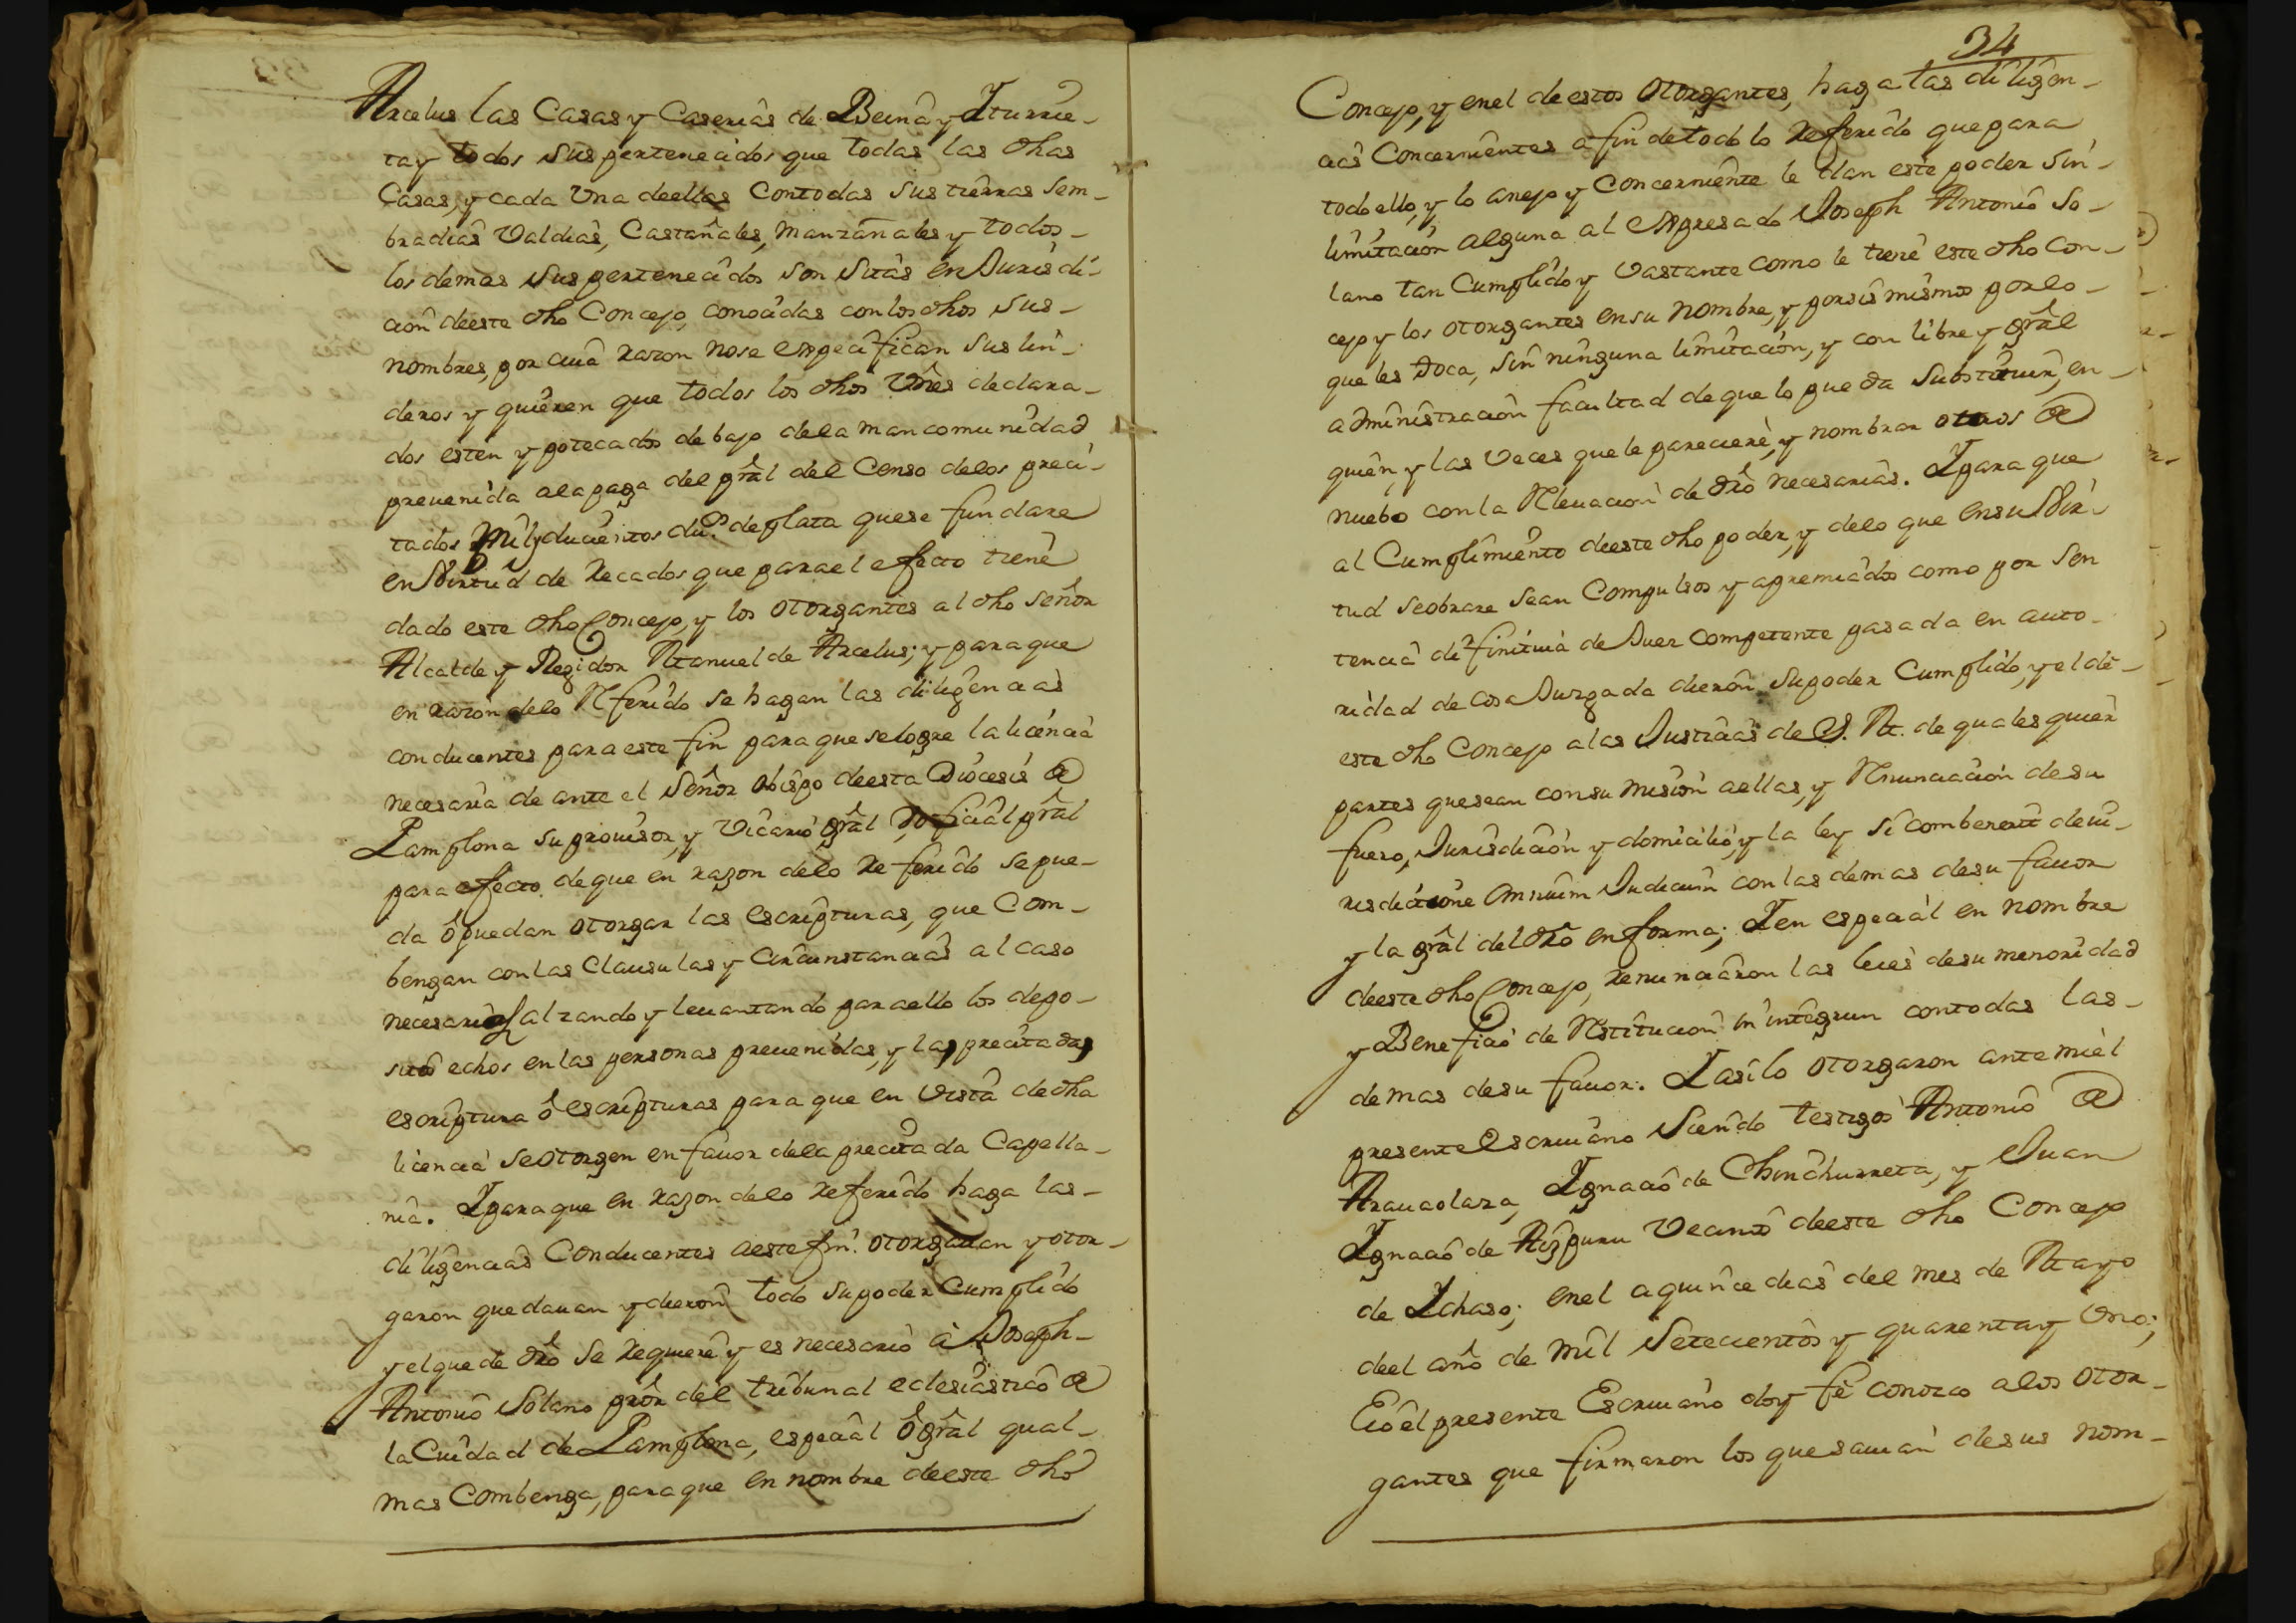 Arcelus las Casas y Caserias de Beina y Iturrie-
ta y todos sus pertenecidos que todas las dhas
Casas, y cada Una deellas Contodas sus tierras sem-
bradias Valdias, Castañales, Manzanales y todos-
los demas sus pertenecidos son sitas en Jurisdi-
cion deeste dho Concejo, conocidas con los dhos sus-
nombres, por cuia razon nose expecifican sus lin-
deros y quieren que todos los dhos Vnes declara-
dos esten ypotecados debajo dela mancomunidad
prevenida ala paga del pral del Censo delos preci-
tados Mil y ducientos dus. de plata quese fundare
en Virtud de recados que para el efecto tiene
dado este dho Concejo, y los otorgantes al dho señor
Alcalde y Regidor Manuel de Arcelus; y para que
en razon delo Referido se hagan las diligencias
conducentes para este fin para que selogre la licencia
necesaria de ante el Señor Obispo deesta Diocesis de
Pamplona su provisor, y Vicario gral, y oficial pral
para efecto de que en razon delo referido se pue-
da ô puedan otorgar las escripturas, que Com-
bengan con las Clausulas y Circunstancias al caso
necesarias alzando y levantando para ello los depo-
sitos echos en las personas prevenidas, y las precitadas
escriptura ô escripturas para que en vista de dha
licencia Seotorgen en favor dela precitada Capella-
nia. Y para que en razon delo referido haga las-
diligencias Conducentes aeste fin. otorgavan y otor-
garon que davan y dieron todo su poder Cumplido
y el que de dro se requiere y es necesario à Joseph-
Antonio Solano pror del tribunal eclesiastico de
la Ciudad de Pamplona, especial ô gral qual-
mas Combenga, para que en nombre deeste dho
34
Concejo, y enel deestos otorgantes, haga las diligen-
cias Concernientes a fin de todo lo referido que para
todo ello, y lo anejo y Concerniente le dan este poder sin-
limitacion alguna al expresado Joseph Antonio So-
lano tan Cumplido y Vastante como le tiene este dho Con-
cejo y los otorgantes en su nombre, y porsi mismos por lo-
que les toca, sin ninguna limitacion, y con libre y gral
administracion facultad de que lo pueda substituir, en-
quien, y las Veces que le pareciere, y nombrar otros de
nuebo con la Relevacion de dro necesarias. Y para que
al Cumplimiento deeste dho poder, y delo que en su Vir-
tud seobrare sean Compulsos y apremiados como por sen
tencia difinitiva de Juez competente pasada en auto-
ridad de cosa Juzgada dieron su poder Cumplido, y el de-
este dho Concejo alas Justicias de S. M. de quales quier
partes quesean con su misión aellas, y Renunciacion desu
fuero, Jurisdicion y domicilio, y la ley si combenerit deiu-
risdicione omnium Judicum con las demas desu favor
y la gral del dro en forma; Y en especial en nombre
deeste dho Concejo, renunciaron las leies desu menoridad
y Beneficio de Restitucion in integrum contodas las-
demas desu favor. Y asilo otorgaron ante mi el
presente Escrivano siendo testigos Antonio de
Aravaolaza, Ignacio de Chinchurreta, y Juan
Ignacio de Aizpuru Vecinos deeste dho Concejo
de Ichaso; enel a quince dias del mes de Mayo
deel año de mil Setecientos y quarenta y Uno;
E io el presente Escrivano doy fe conozco alos otor-
gantes que firmaron los que savian desus nom-